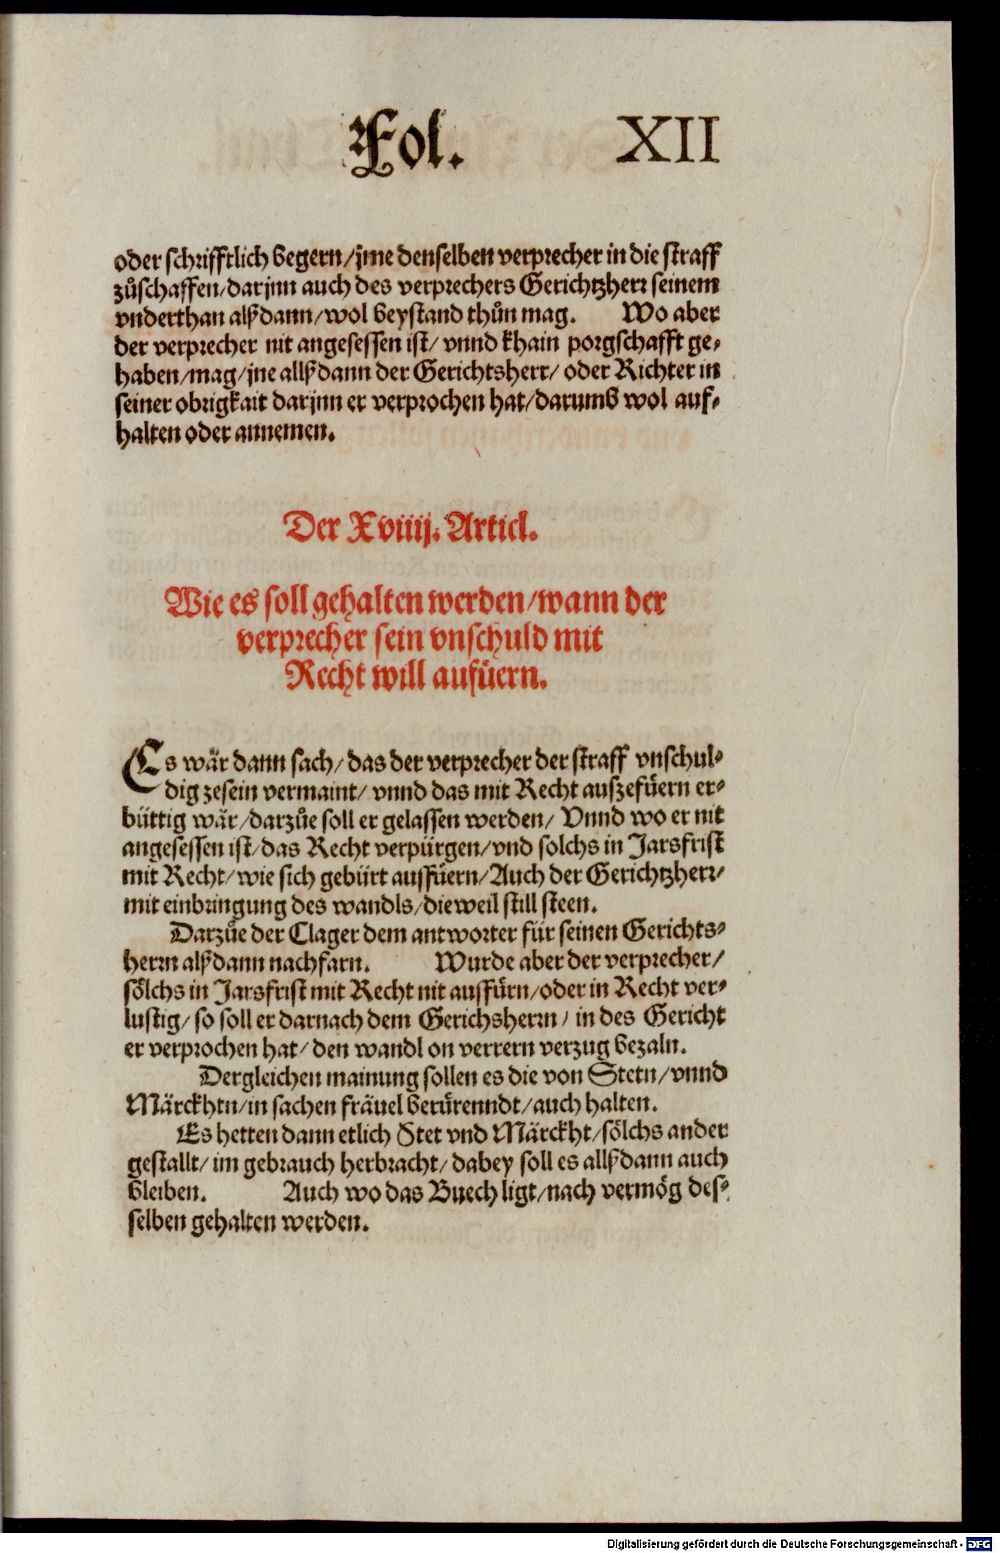 Fol. XII
oder schrifftlich begern/jme denselben verprecher in die straff
zůschaffen/darjnn auch des verprechers Gerichtzherr seinem
vnderthan alßdann/wol beystand thůn mag. Wo aber
der verprecher nit angesessen ist/ vnnd khain porgschafft ge-
haben/mag/jne allßdann der Gerichtsherr/ oder Richter in
seiner obrigkait darjnn er verprochen hat/darumb wol auf-
halten oder annemen.
Der Xviiij. Articl.
Wie es soll gehalten werden/wann der
verprecher sein vnschuld mit
Recht will aufüern.
Es wär dann sach/das der verprecher der straff vnschul-
dig zesein vermaint/ vnnd das mit Recht auszefüern er-
büttig wär/darzůe soll er gelassen werden/ Vnnd wo er nit
angesessen ist/das Recht verpürgen/vnd solchs in Jarsfrist
mit Recht/wie sich gebürt ausfüern/Auch der Gerichtzherr/
mit einbringung des wandls/dieweil still steen.
Darzůe der Clager dem antworter für seinen Gerichts-
herrn alßdann nachfarn. Wurde aber der verprecher/
sölchs in Jarsfrist mit Recht nit ausfürn/oder in Recht ver-
lustig/ so soll er darnach dem Gerichsherrn/ in des Gericht
er verprochen hat/ den wandl on verrern verzug bezaln.
Dergleichen mainung sollen es die von Stetn/vnnd
Märckhtn/in sachen fräuel berürenndt/auch halten.
Es hetten dann etlich Stet vnd Märckht/sölchs ander
gestallt/ im gebrauch herbracht/dabey soll es allßdann auch
bleiben. Auch wo das Buech ligt/nach vermög des-
selben gehalten werden.
Digitalisierung gefördert durch die Deutsche Forschungsgemeinschaft - DFG